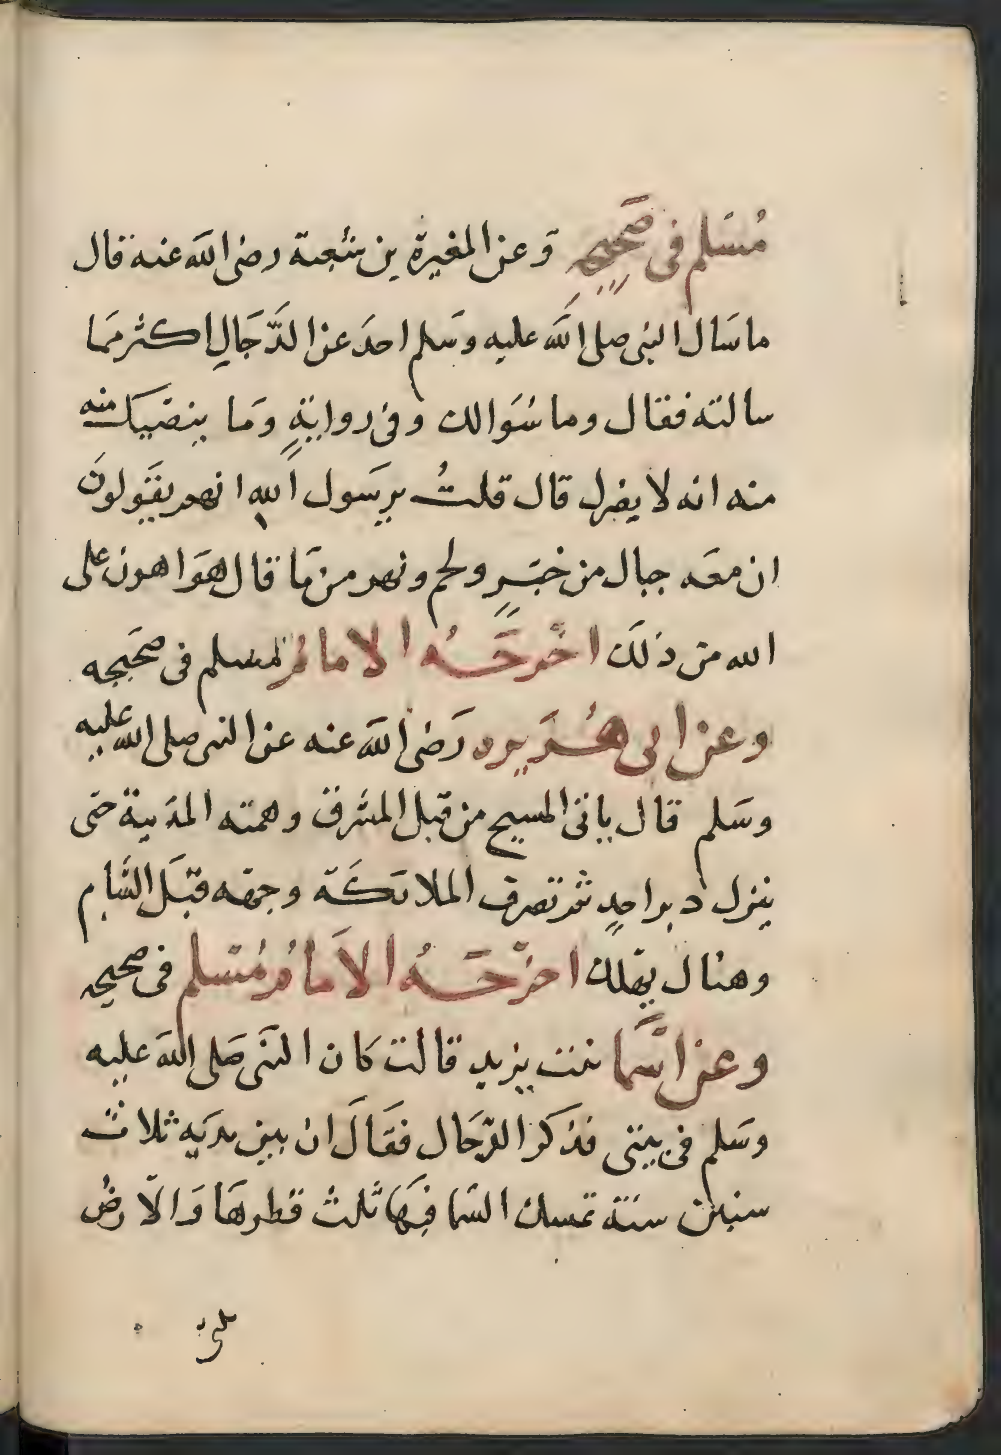 مُسَلم فى صَحيحِه وَعن المغيرة بن شُعبة رضى الله عنه قال
ما سَال النبى صلى الله عليه وسَلم احدَ عن الدَّجَالِ اكثر مَما
سالته فقال وما سُوَالك وفى روايةٍ وَما ينصَيبك منه
منه انه لا يضرك قال قلتُ يرسَول الله انهم يقَولونَ
ان معَه جبال من خبَزٍ ولحم ونهر من مَا قال هوَ اهون على
الله من ذلَك اخرجَهُ الامامُ لمسلم فى صحَيحه
وعن ابى هُرَيره رَضى الله عنه عن النبى صلى الله عليه
وسَلم قال ياتى المسيح من قبل المشرق وهمته المدَينة حتى
ينزل دبر احدٍ ثمر تصرف الملائكَة وجهه قبَل الشام
وهنال يهلك اخرْجَهُ الاَمامُ مُسَلم فى صحيحه
وعن اسَّما بنت يزيد قالت كَان النَبى صَلى الله عليه
وسَلم فى بيتى فذكَر الدَّجال فقَالَ ان بين يديَه ثلاث
سنين سنَة تمسك السَّما فيهَا ثلث قطرهَا وَالاَرضُ